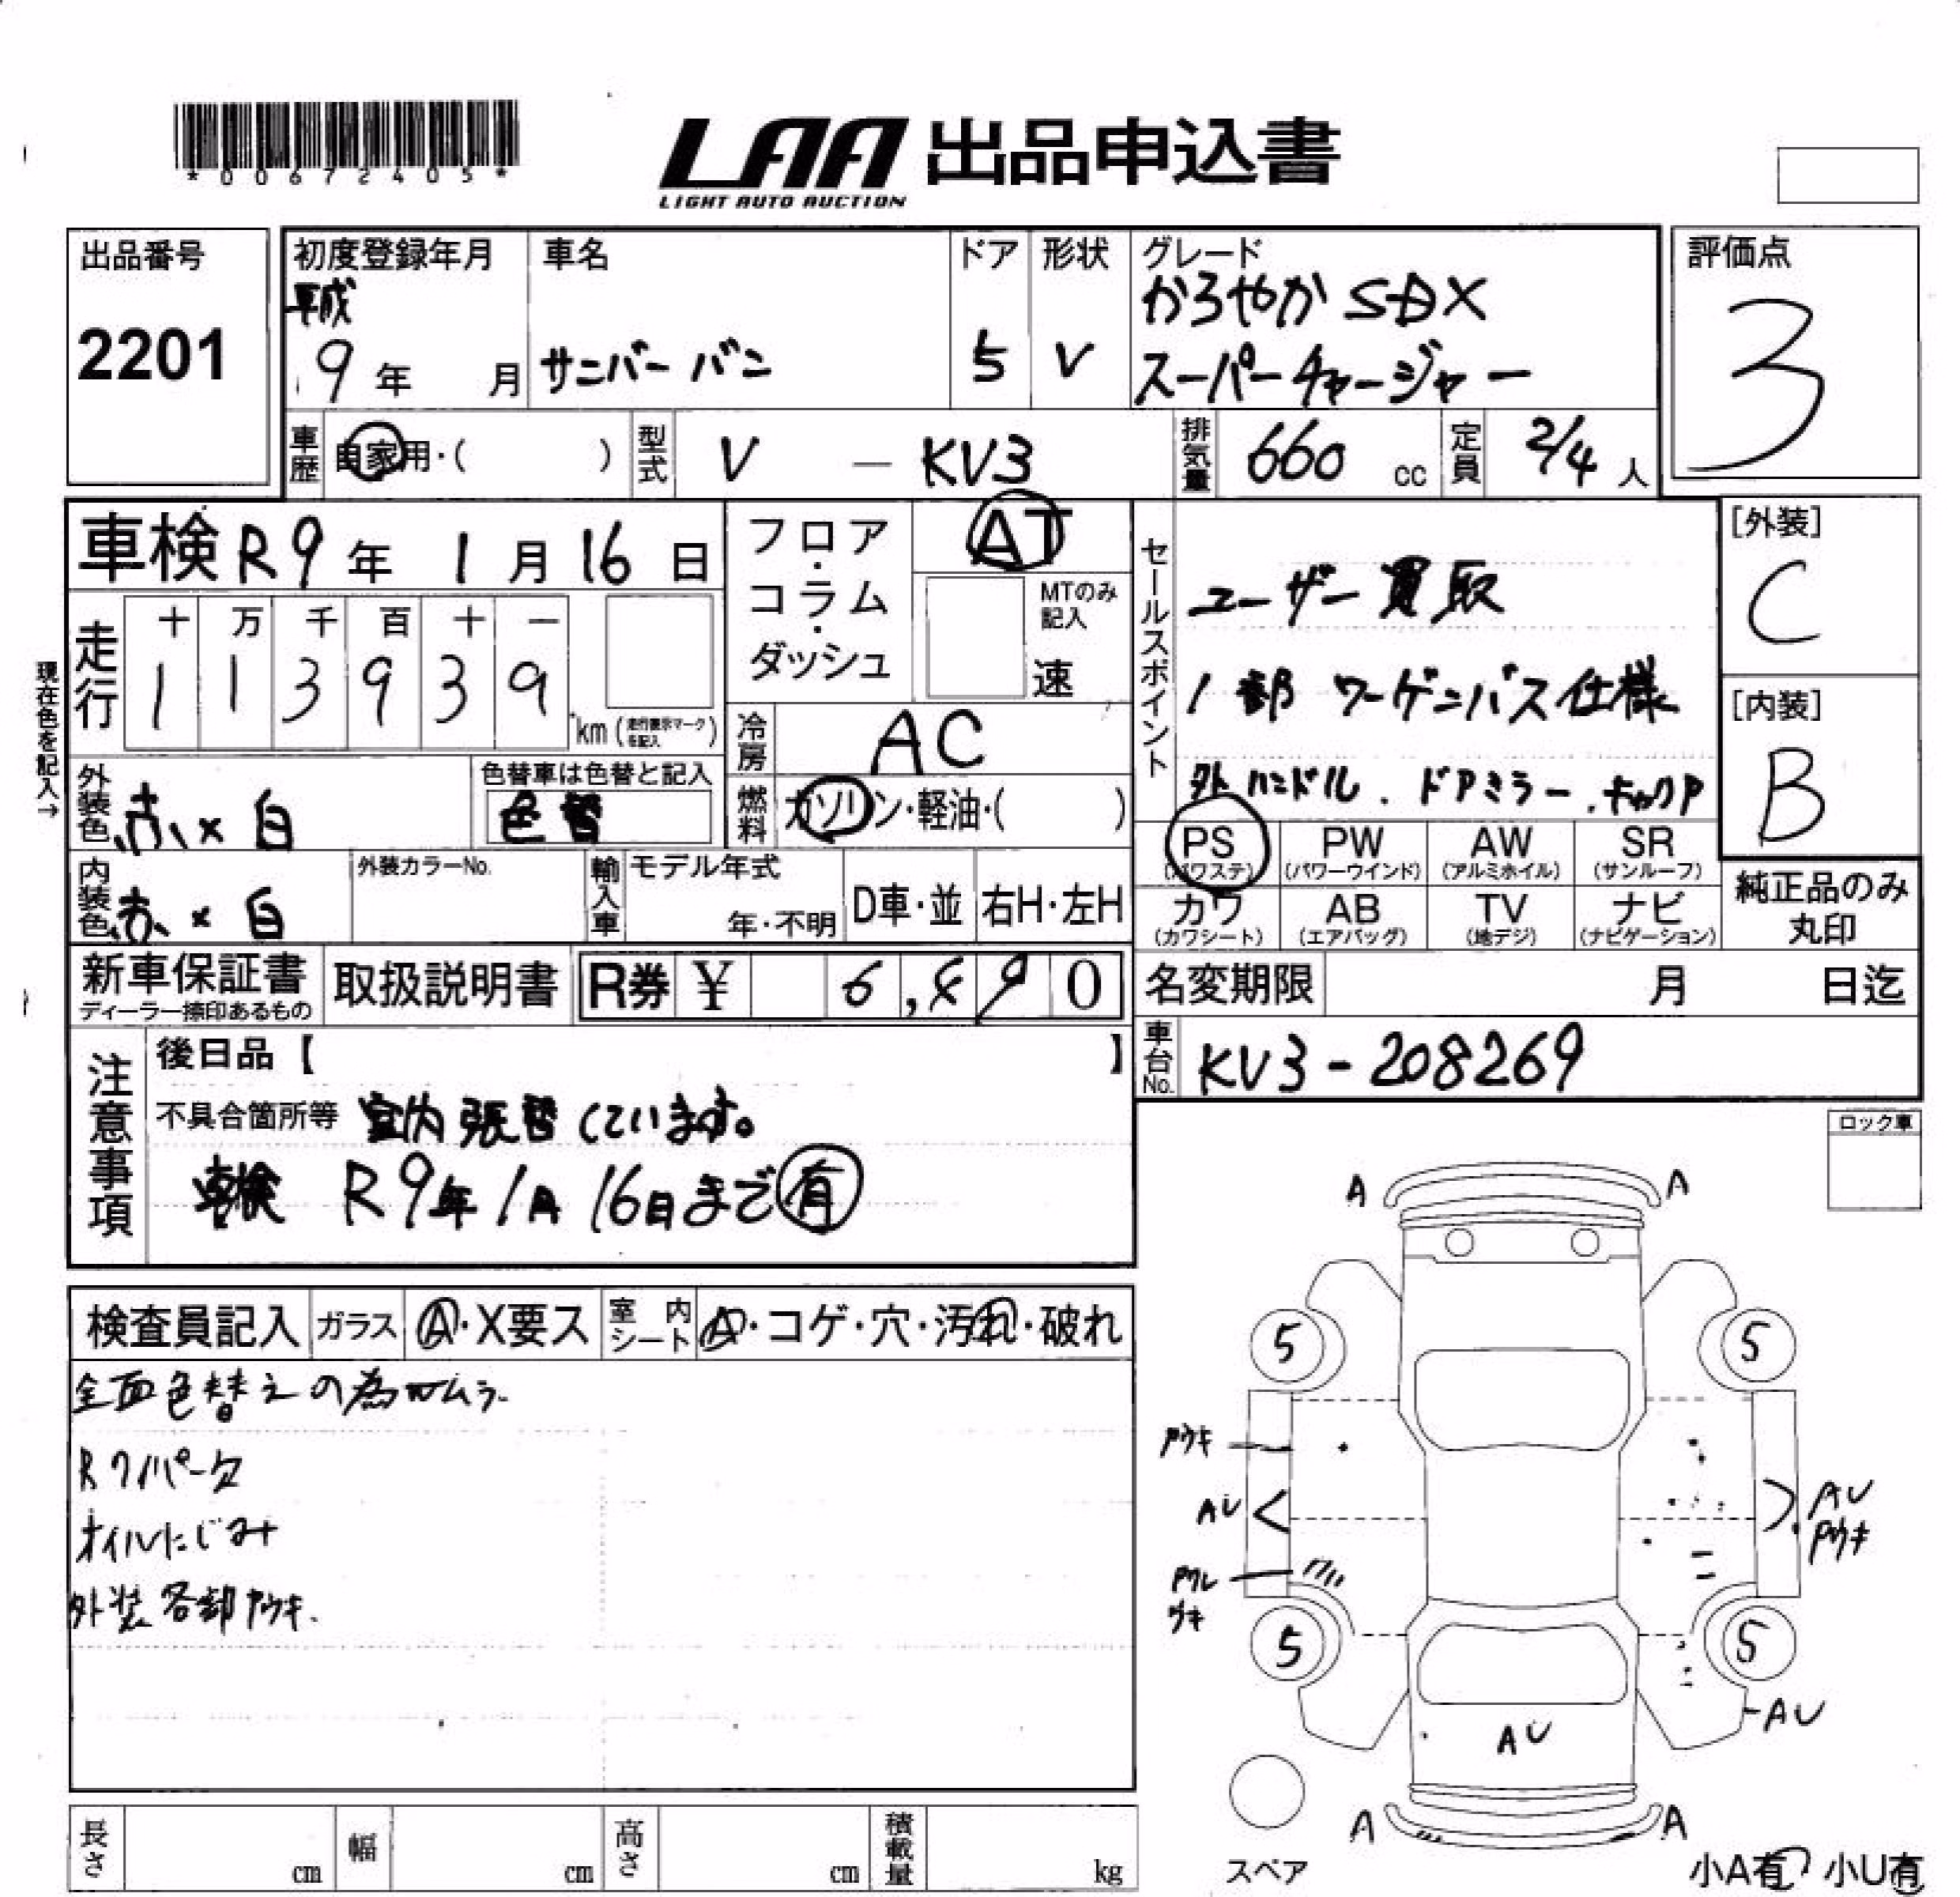 *00672405*
LAA 出品申込書
LIGHT AUTO AUCTION
出品番号
2201
初度登録年月
平成
9年 月
車名
サンバー バン
ドア
5
形状
V
グレード
かろやか SDX
スーパーチャージャー
評価点
3
車歴 自家用・( )
型式 V - KV3
排気量 660 cc
定員 2/4 人
車検 R9年 1月16日
フロア・コラム・ダッシュ
AT
MTのみ記入
速
セールスポイント
ユーザー買取
1部 ワーゲンバス仕様
外ハンドル.ドアミラー.キャップ
[外装]
C
[内装]
B
現在色を記入→
走行
十 万 千 百 十 一
1 1 3 9 3 9
km (走行表示マークを記入)
冷房 AC
燃料 ガソリン・軽油・( )
外装色 赤×白
色替車は色替と記入
色替
内装色 赤×白
外装カラーNo.
輸入車
モデル年式
年・不明
D車・並
右H・左H
PS (パワステ)
PW (パワーウインド)
AW (アルミホイル)
SR (サンルーフ)
カワ (カワシート)
AB (エアバッグ)
TV (地デジ)
ナビ (ナビゲーション)
純正品のみ
丸印
新車保証書
ディーラー捺印あるもの
取扱説明書
R券 ¥ 6,890
名変期限 月 日迄
車台No. KV3-208269
注意事項
後日品【 】
不具合箇所等 室内張替しています。
車検 R9年1月16日まで有
ロック車
検査員記入
ガラス A・X要ス
室内シート A・コゲ・穴・汚れ・破れ
全面色替えの為ムラ.
Rワイパー欠
オイルにじみ
外装各部Pウキ.
A A
5 5
Pウキ
AU
AU
Pウキ
5 5
AU
AU
A A
スペア
小A有 小U有
長さ cm
幅 cm
高さ cm
積載量 kg